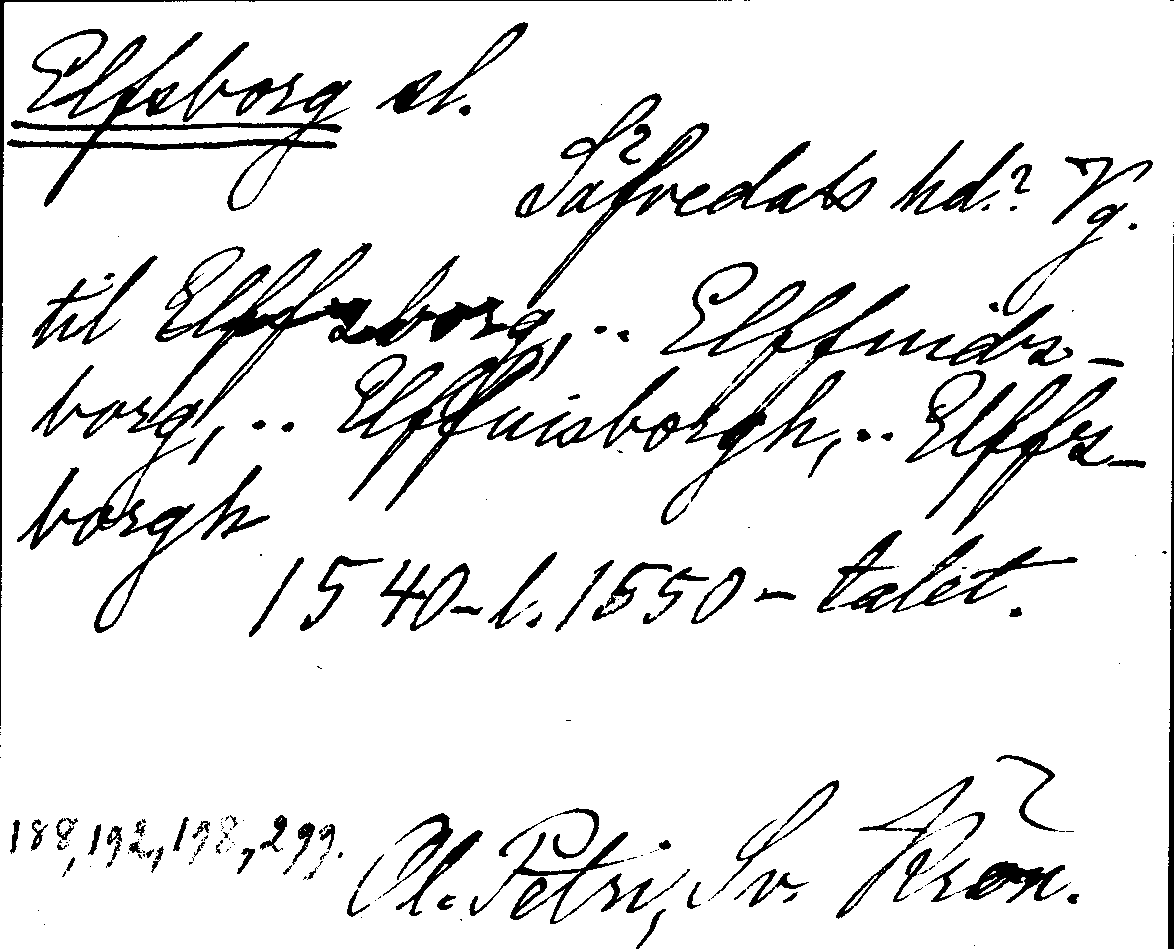 Elfsborg sl.
Säfvedals hd.? Vg.
til Elffzborg, .. Elffuids-
borg, .. Elffuisborgh, .. Elffs-
borgh
1540- l. 1550-talet.
188, 192, 198, 299. Ol. Petri, Sv. Krön.